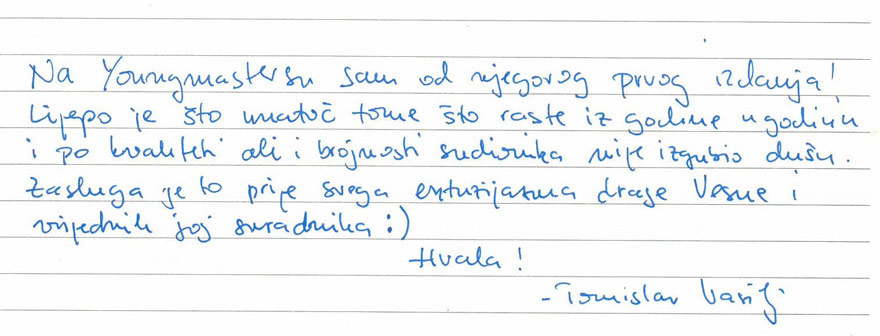 Na Youngmastersu sam od njegovog prvog izdanja!
Lijepo je što unatoč tome što raste iz godine u godinu
i po kvaliteti ali i brojnosti sudionika nije izgubio dušu.
Zasluga je to prije svega entuzijazma drage Vesne i
vrijednih joj suradnika :)
Hvala!
- Tomislav